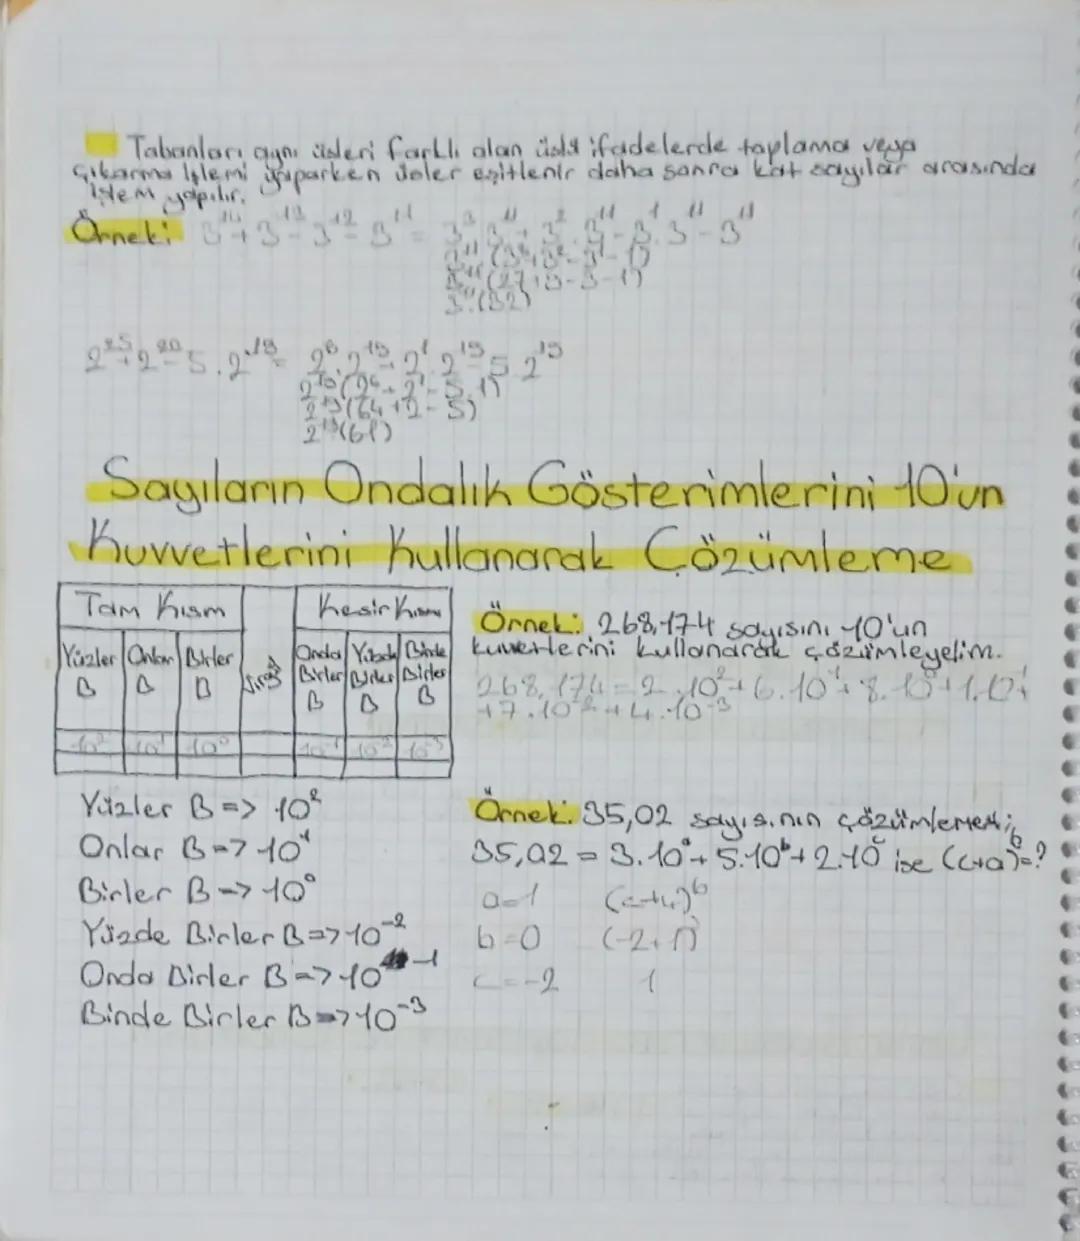 Tabanları aynı üsleri farklı olan üslü ifadelerde toplama veya
çıkarma işlemi yaparken üsler eşitlenir daha sonra kat sayılar arasında
işlem yapılır.
Örnek: 3¹⁴+3¹³-3¹²-3¹¹ = 3³.3¹¹+3².3¹¹-3¹.3¹¹-3¹¹
3¹¹(3³+3²-3¹-1)
3¹¹(27+9-3-1)
3¹¹(32)
2²⁵+2²⁰-5.2¹⁹= 2⁶.2¹⁹+2¹.2¹⁹-5.2¹⁹
2¹⁹(2⁶+2¹-5.1)
2¹⁹(64+2-5)
2¹⁹(61)
Sayıların Ondalık Gösterimlerini 10'un
Kuvvetlerini Kullanarak Çözümleme
Tam Kısım Kesir Kısmı
Yüzler B Onlar B Birler B Onda Birler B Yüzde Birler B Binde Birler B
10² 10¹ 10⁰ 10⁻¹ 10⁻² 10⁻³
Örnek: 268,174 sayısını 10'un
kuvvetlerini kullanarak çözümleyelim.
268,174=2.10²+6.10¹+8.10⁰+1.10⁻¹
+7.10⁻²+4.10⁻³
Yüzler B => 10²
Onlar B => 10¹
Birler B => 10⁰
Yüzde Birler B => 10⁻²
Onda Birler B => 10⁻¹
Binde Birler B => 10⁻³
Örnek: 35,02 sayısının çözümlemesi;
35,02 = 3.10ᵃ+5.10ᵇ+2.10ᶜ ise (c+a)ᵇ=?
a=1 (c+a)ᵇ
b=0 (-2+1)⁰
c=-2 1